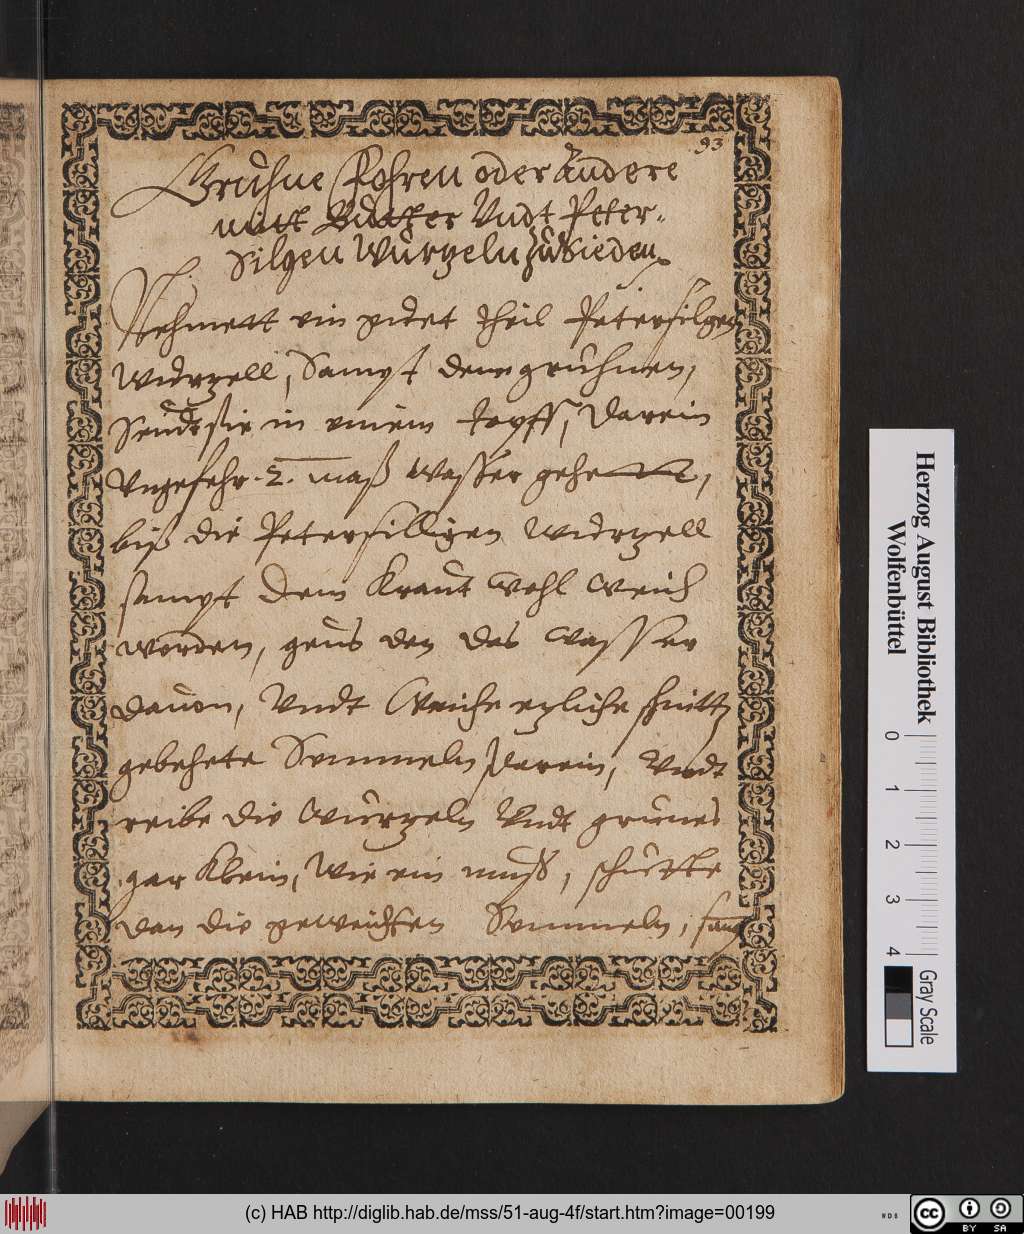 93
Gruhne Fohren oder Andere
mitt Butter Vndt Peter-
silgen Wurzeln zu Sieden.
Nehmett ein gudet theil Petersilgen
Wurzell, Sampt dem gruhnen,
Seudt sie in einem topff, darein
Vngefehr .2. maß Wasser gehett,
biß die Petersilligen Wurzell
sampt dem Kraut Wohl Weich
worden, geus den das Wasser
dauon, Vndt Weiche ezliche schnitt
gebehete Semmeln darein, Vndt
reibe die Wurzeln Vndt grunes
gar Klein, Wie ein muß, schutte
dan die geweichten Semmeln, samp
Herzog August Bibliothek
Wolfenbüttel
0 1 2 3 4
Gray Scale
(c) HAB http://diglib.hab.de/mss/51-aug-4f/start.htm?image=00199
WDB
cc BY SA